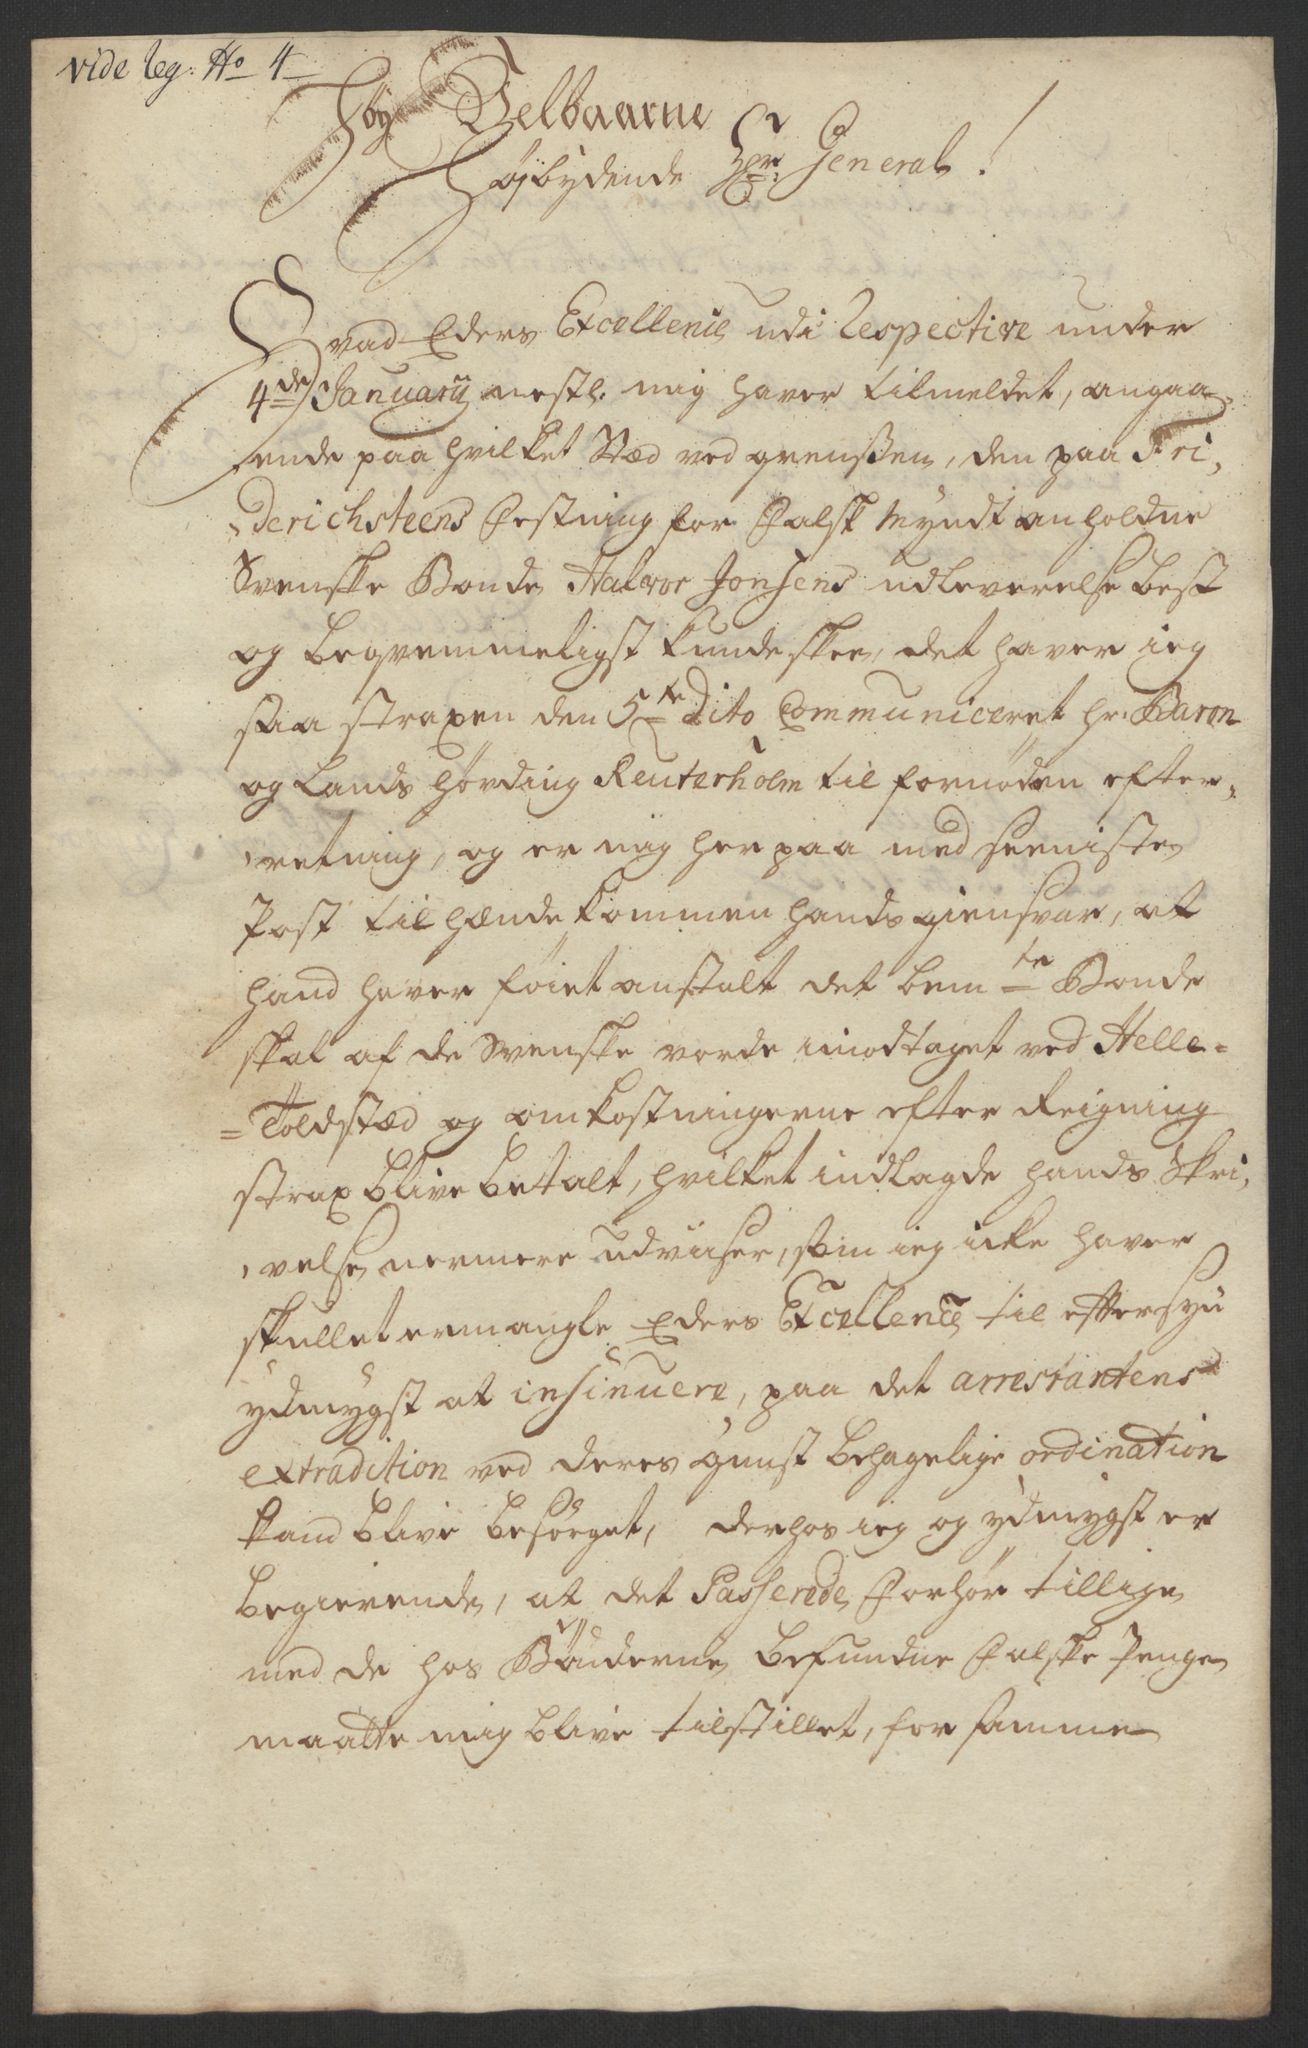 vide leg: No 4
Høy Velbaarne
Højbydende Hr: General!
Hvad Eders Excellence udi Respective under
4de January nestl. mig haver tilmeldet, angaa-
ende paa hvilket Stæd ved grenssen, den paa Fri,
derichsteens Festning for Falsk Myndt anholdne
Svenske Bonde Halvor Jonsens udleverelse best
og beqvemmeligst kunde skee, det haver ieg
saa straxen den 5te Dito Communiceret hr. Baron
og Lands Høvding Reuterholm til fornøden efter,
retning, og er mig her paa med seeniste
Post til hænde kommen hands giensvar, at
hand haver føiet anstalt det bemte Bonde
skal af de Svenske vorde imodtaget ved Helle-
Toldstæd og omkostningerne efter Reigning
strax blive betalt, hvilket indlagde hands Skri,
velse nermere udviiser, som ieg icke haver
skullet ermangle Eders Excellence til effersyn
ydmygst at insinuere, paa det arrestantens
extradition ved deres gunst behagelige ordination
kand blive besørget, derhos ieg og ydmygst er
begierende, at det Passerede Forhør tillige
med de hos Bønderne befundne Falske Penge
maatte mig blive tilstillet, for samme